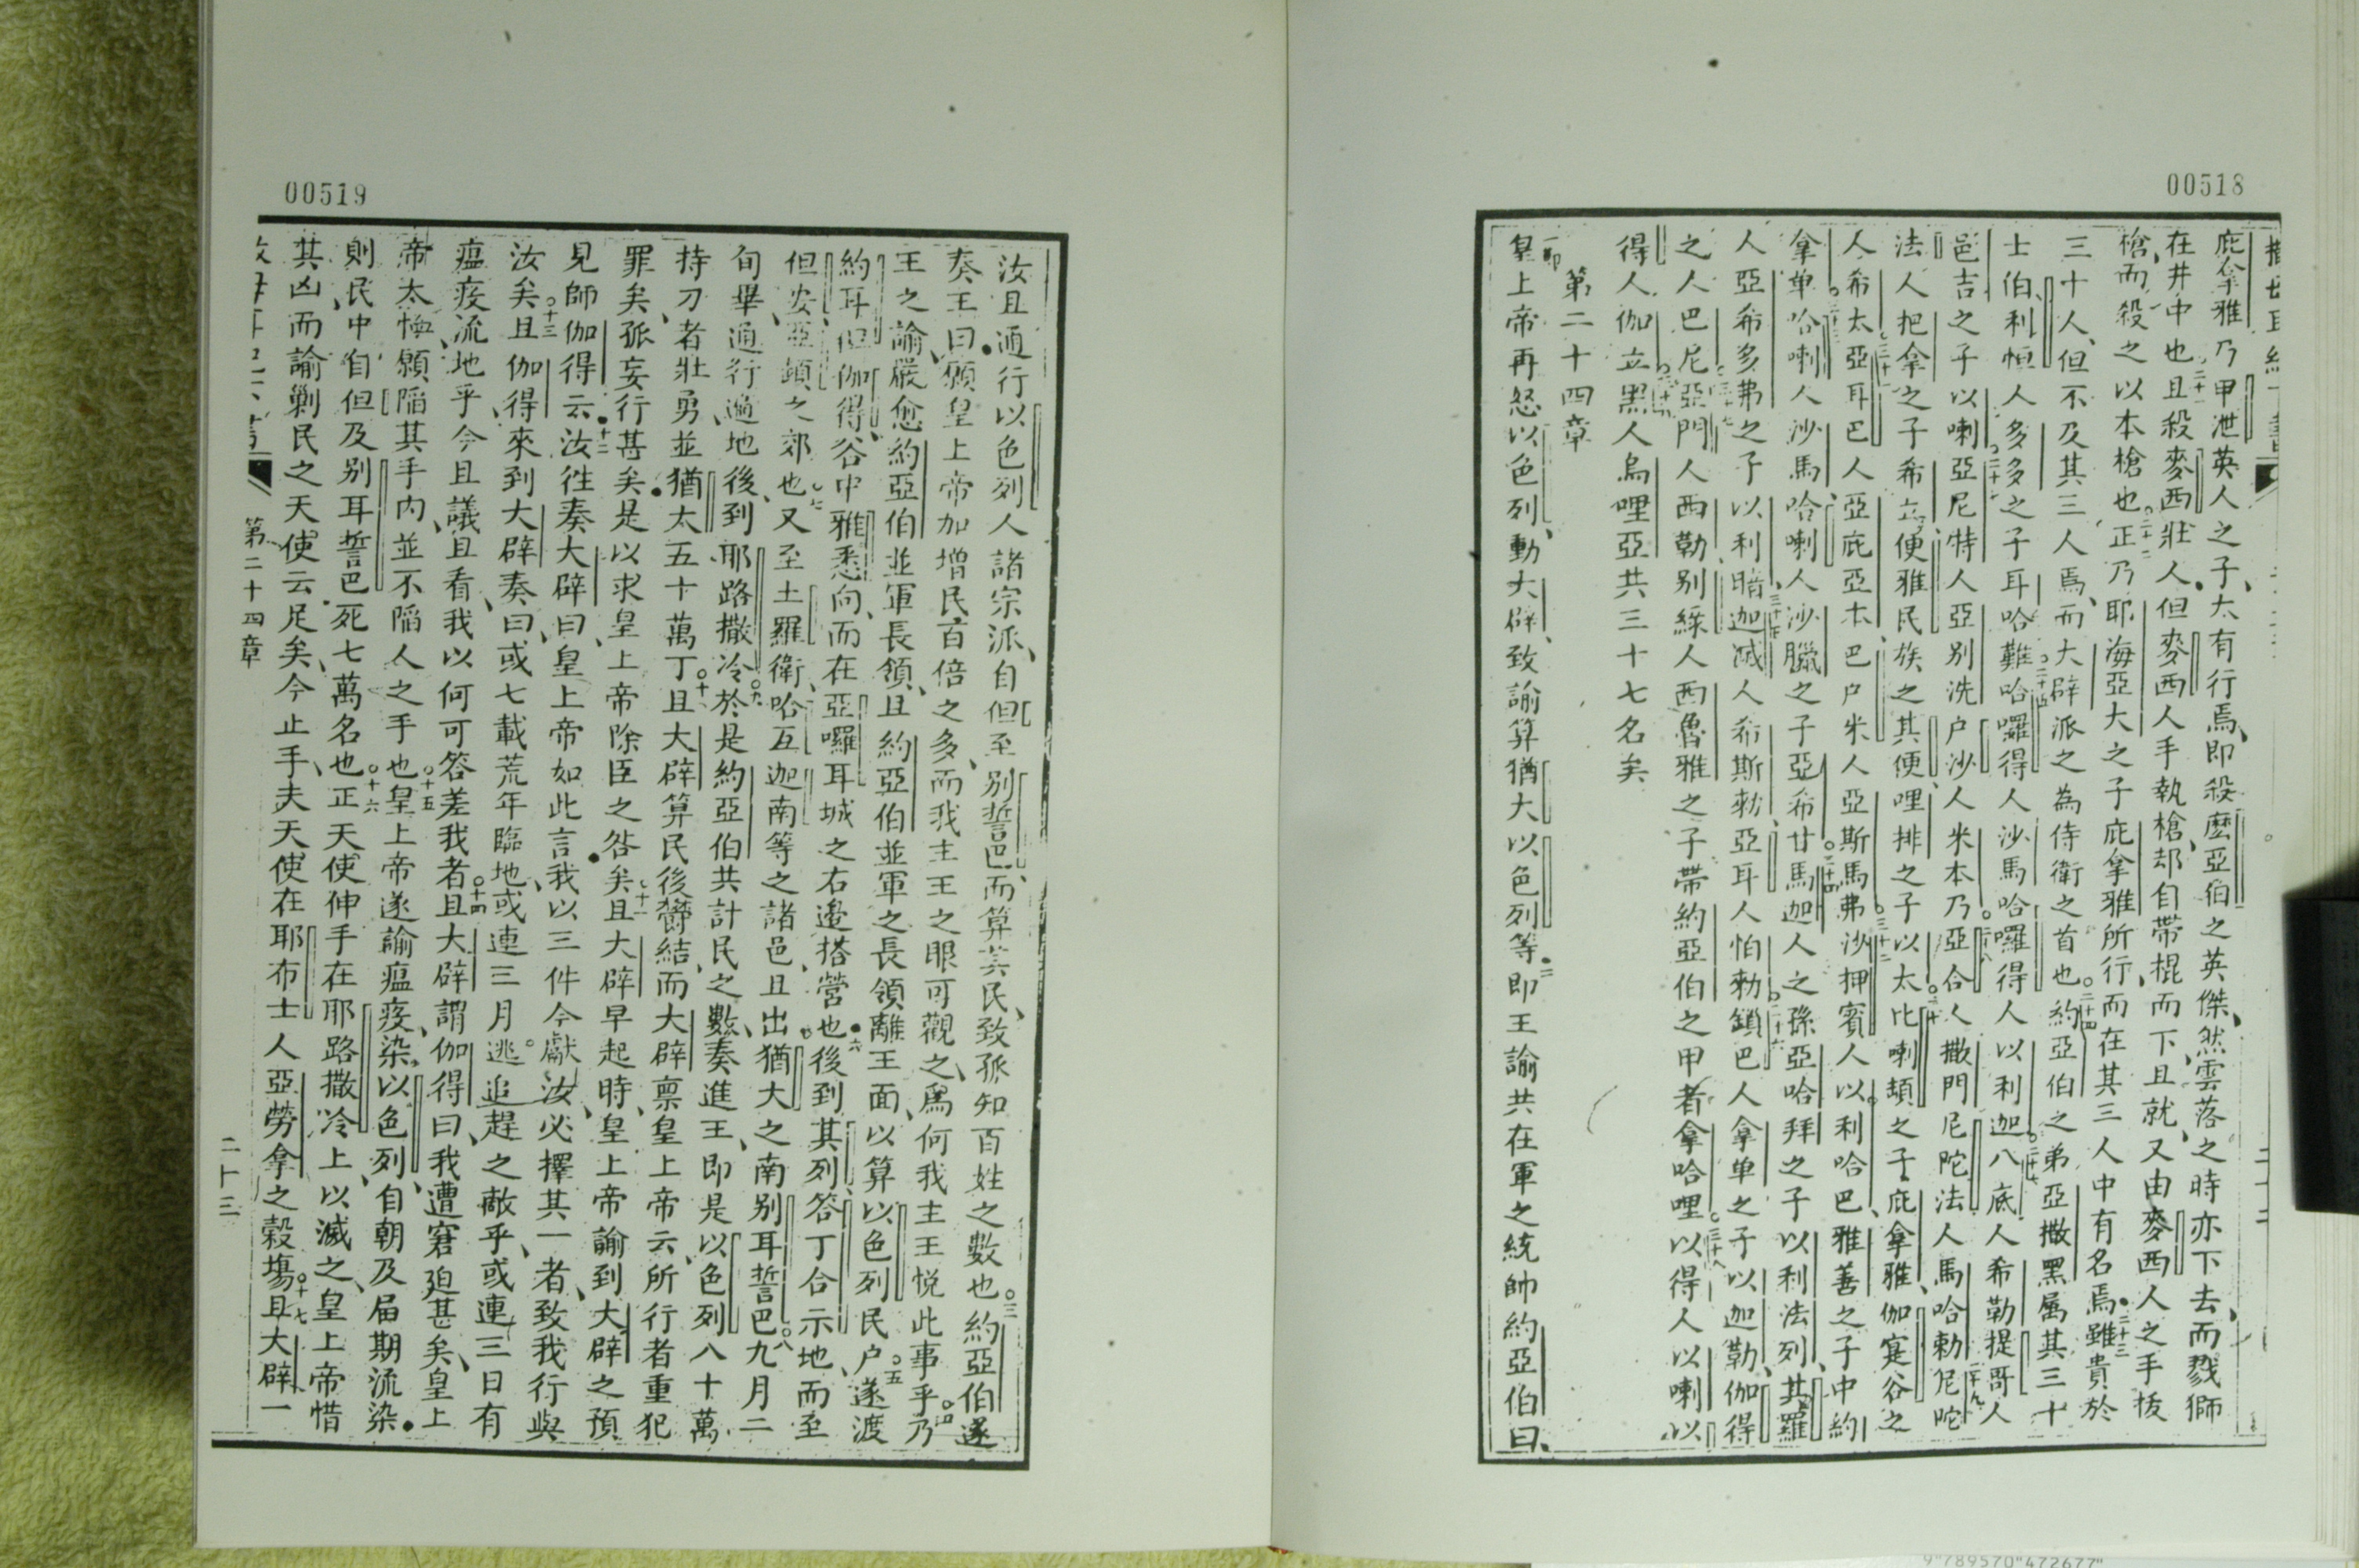 00518
庇拿雅乃甲泄英人之子、太有行焉、即殺麼亞伯之英傑、然雲落之時亦下去、而戮獅
在井中也二十一且殺麥西壯人但麥西人手執槍、却自帶棍而下且就、又由麥西人之手拔
槍而殺之以本槍也二十二正乃耶海亞大之子庇拿雅所行、而在其三人中有名焉二十三雖貴於
三十人、但不及其三人焉、而大辟派之為侍衛之首也二十四約亞伯之弟亞撒黑屬其三十
士伯利恒人多多之子耳哈難二十五哈囉得人沙馬哈囉得人以利迦二十六八底人希勒提哥人
邑吉之子以喇二十七亞尼特人亞別洗戶沙人米本乃二十八亞合人撒門尼陀法人馬哈勅尼陀二十九
法人把拿之子希立、便雅民族之其便哩排之子以太三十比喇頡之子庇拿雅、伽寔谷之
人希太三十一亞耳巴人亞庇亞本巴戶米人亞斯馬弗三十二沙押賓人以利哈巴、雅善之子中約
拿單三十三哈喇人沙馬哈喇人沙臘之子亞希甘三十四馬迦人之孫亞哈拜之子以利法列、其羅
人亞希多弗之子以利暗三十五迦滅人希斯勅、亞耳人怕勅三十六鎖巴人拿單之子以迦勒、伽得
之人巴尼三十七亞門人西勒、別綵人西魯雅之子帶約亞伯之甲者拿哈哩三十八以得人以喇以
得人伽立三十九黑人烏哩亞共三十七名矣
第二十四章
一耶皇上帝再怒以色列、動大辟、致諭算猶大以色列等二即王諭共在軍之統帥約亞伯曰、
00519
汝且通行以色列人諸宗派、自但至別誓巴、而算其民、致孤知百姓之數也三約亞伯遂
奏王曰、願皇上帝加增民百倍之多、而我主王之眼可觀之、爲何我主王悅此事乎四乃
王之諭、嚴愈約亞伯並軍長領、且約亞伯並軍之長領離王面、以算以色列民戶、五遂渡
約耳但伽得、谷中雅悉向、而在亞囉耳城之右邊搭營也六後到其列、答丁合示地、而至
但安、亞頓之郊也七又至土羅衛、哈互迦南等之諸邑、且出猶大之南別耳誓巴八九月二
旬畢、通行遍地後、到耶路撒冷九於是約亞伯共計民之數、奏進王、即是以色列八十萬
持刀者壯勇、並猶太五十萬丁十且大辟算民後欝結、而大辟禀皇上帝云、所行者重犯
罪矣、孤妄行甚矣是以求皇上帝除臣之咎矣十一且大辟早起時、皇上帝諭到大辟之預
見師伽得云十二汝徃奏大辟曰、皇上帝如此言、我以三件今獻汝、必擇其一者、致我行與
汝矣十三且伽得來到大辟奏曰、或七載荒年臨地、或連三月逃追趕之敵乎、或連三日有
瘟疫流地乎、今且議、且看、我以何可答差我者十四且大辟謂伽得曰、我遭窘廹甚矣、皇上
帝太憐、願䧟其手内、並不䧟人之手也十五皇上帝遂諭瘟疫染以色列、自朝及届期流染
則民中自但及别耳誓巴死七萬名也十六正天使伸手在耶路撒冷上、以滅之、皇上帝惜
其凶而諭剿民之天使云足矣、今止手、夫天使在耶布士人亞勞拿之穀塲十七且大辟一
第二十四章
二十三
9"789570"472677"